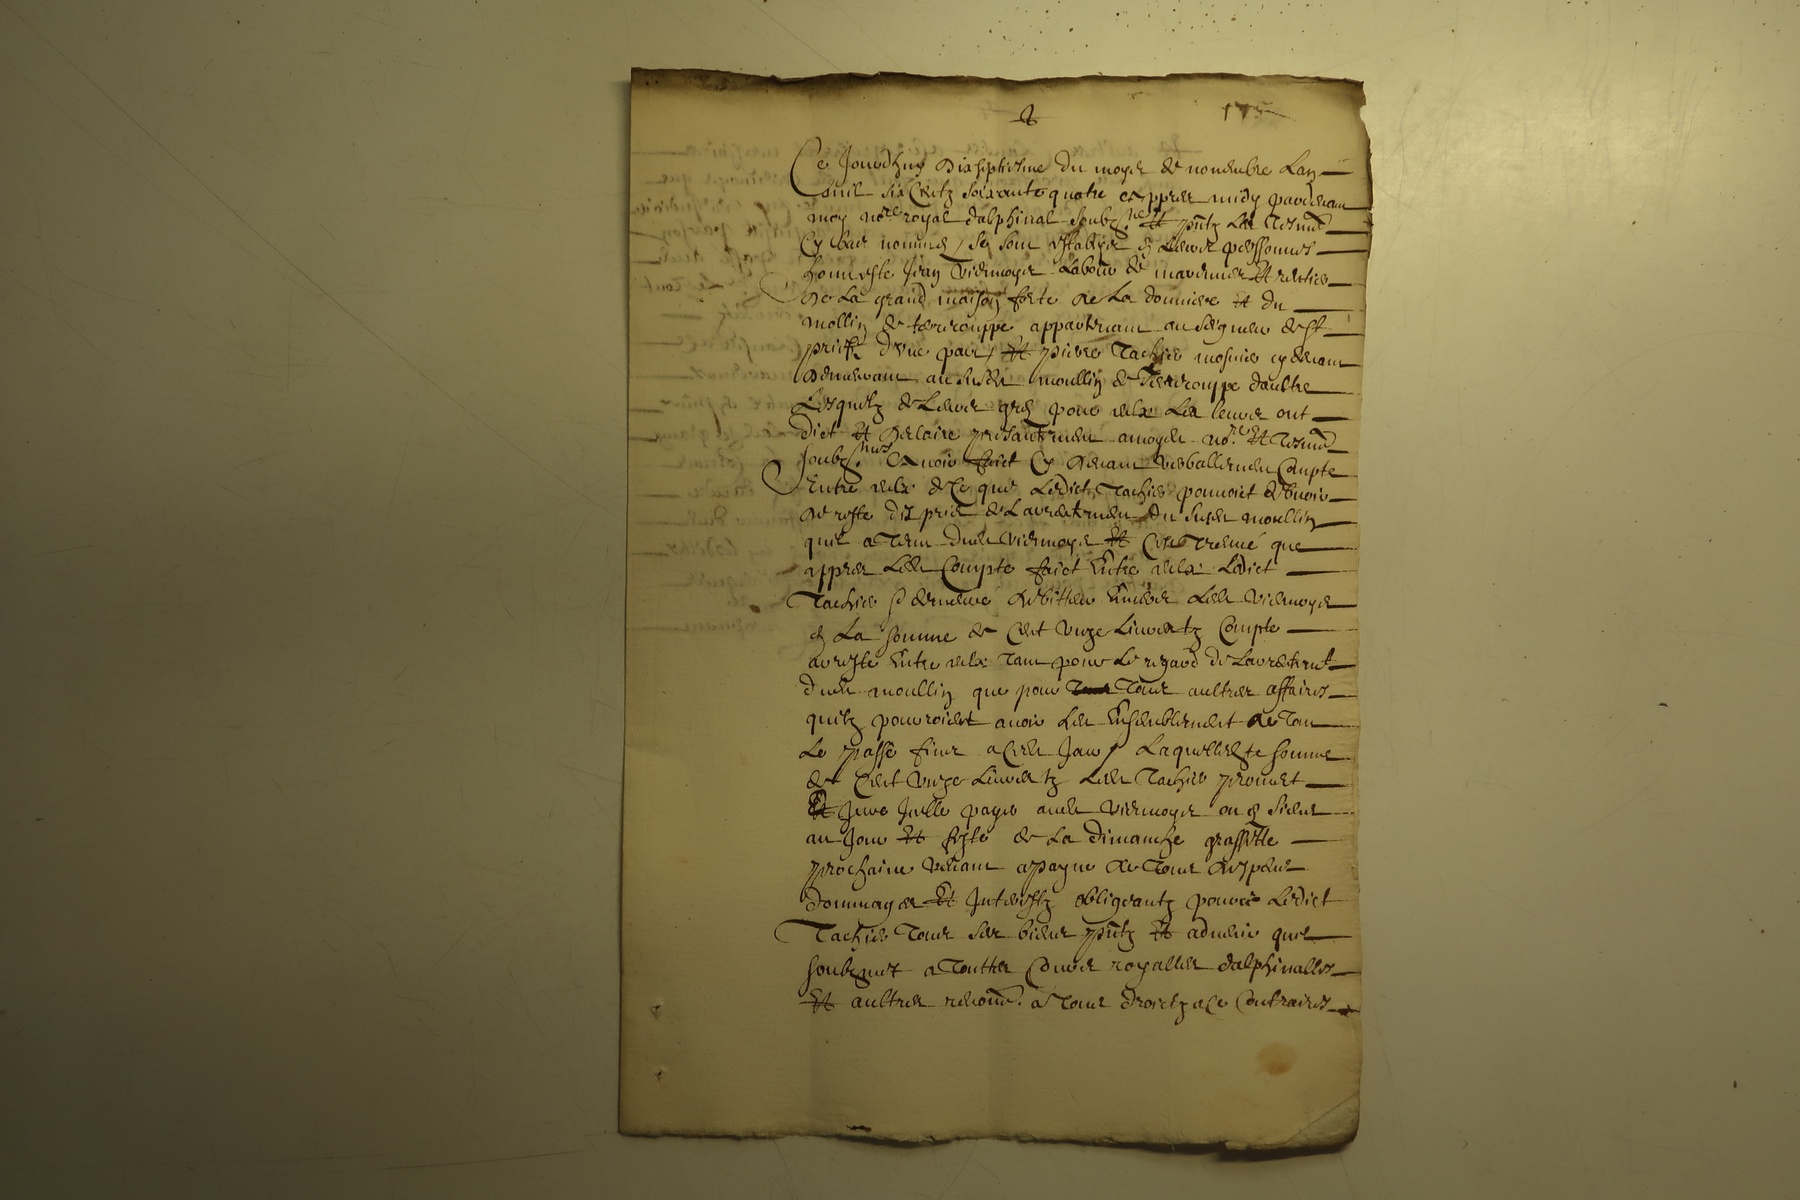 175
Ce Jourdhuy dixseptiesme du moys de novembre Lan
mil six Centz soixante quatre appres midy pardevant
moy no.re royal dalphinal soubz.ne et pntz Les tesmo
Cy bas nommes se sont establys en Leurs personnes
honneste Jean Viermoys Labour de et rentier
de La grand maison forte de La donniere et du
mollin de appartenant au seigneur de st
priest dune part et pierre Tachier mosnier cy devant
demeurant au susdit moullin de daultre
Lesquelz de Leurs gres pour eulx Les leurs ont
dict et desclaire presantement a moyd no.re et tesmo
soubz.nes avoir faict Cy devant verballement Compte
Entre eulx de Ce que Ledict Tachier pouvoit debvoir
de reste du prix de Larrentement du susdit moullin
quil a tenu dudit Viermoys et que
appres Ledit Compte faict Entre eulx Ledict
Tachier demeure debitteur Envers Ledit Viermoys
en La somme de Cent unze Livres tz Compte
arreste Entre eulx tant pour Le regard de Larrentemt
dudit moullin que pour tous aultres affaires
quilz pourroient avoir heu Ensemblement de tout
Le passe finir a Cedit Jour Laquelle somme
de Cent unze Livres tz Ledit Tachier promet
Et Jure Jcelle payer audit Viermoys ou es siens
au Jour et feste de La dimanche grassette
prochaine venant a payne de tous despens
dommages et Jnterestz obligeantz Ledict
Tachier tous ses biens pntz et advenir quil
soubzmet a touttes Cours royalles dalphinalles
et aultres a tous droictz a Ce Contraires